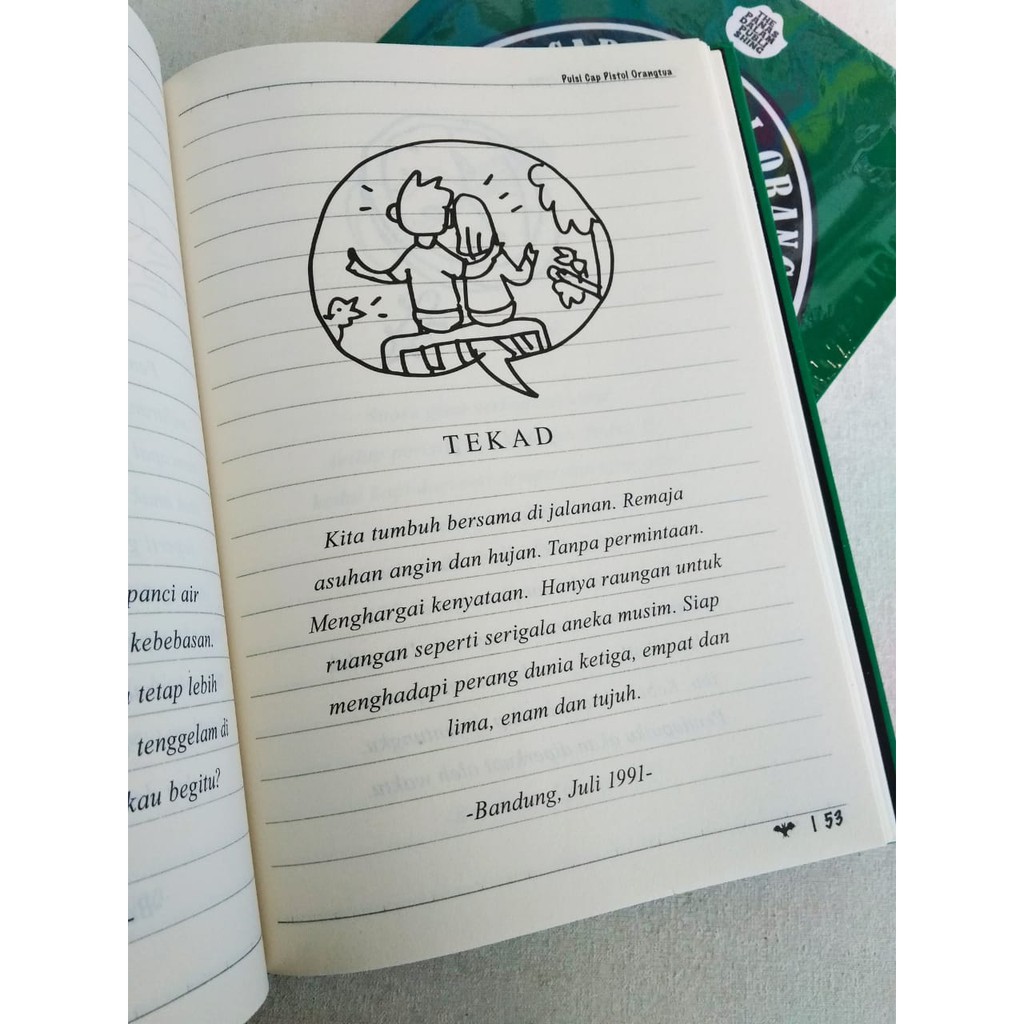 Puisi Cap Pistol Orangtua
THE
PANAS
DALAM
PUBLI
SHING
ORANG
TEKAD
Kita tumbuh bersama di jalanan. Remaja
asuhan angin dan hujan. Tanpa permintaan.
Menghargai kenyataan. Hanya raungan untuk
ruangan seperti serigala aneka musim. Siap
menghadapi perang dunia ketiga, empat dan
lima, enam dan tujuh.
-Bandung, Juli 1991-
| 53
panci air
kebebasan.
tetap lebih
tenggelam di
kau begitu?